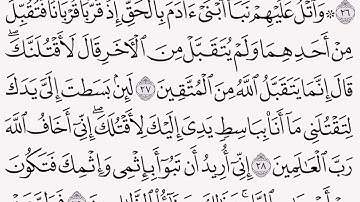 ٢٦ ۞ وَٱتۡلُ عَلَيۡهِمۡ نَبَأَ ٱبۡنَيۡ ءَادَمَ بِٱلۡحَقِّ إِذۡ قَرَّبَا قُرۡبَانٗا فَتُقُبِّلَ
مِنۡ أَحَدِهِمَا وَلَمۡ يُتَقَبَّلۡ مِنَ ٱلۡأٓخَرِ قَالَ لَأَقۡتُلَنَّكَۖ
قَالَ إِنَّمَا يَتَقَبَّلُ ٱللَّهُ مِنَ ٱلۡمُتَّقِينَ ٢٧ لَئِنۢ بَسَطتَ إِلَيَّ يَدَكَ
لِتَقۡتُلَنِي مَآ أَنَا۠ بِبَاسِطٖ يَدِيَ إِلَيۡكَ لِأَقۡتُلَكَۖ إِنِّيٓ أَخَافُ ٱللَّهَ
رَبَّ ٱلۡعَٰلَمِينَ ٢٨ إِنِّيٓ أُرِيدُ أَن تَبُوٓأَ بِإِثۡمِي وَإِثۡمِكَ فَتَكُونَ